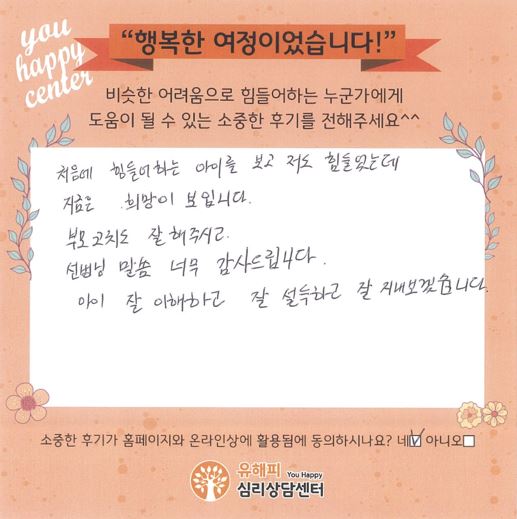 you
happy
center
“행복한 여정이었습니다!”
비슷한 어려움으로 힘들어하는 누군가에게
도움이 될 수 있는 소중한 후기를 전해주세요^^
처음에 힘들어하는 아이를 보고 저도 힘들었는데
지금은 희망이 보입니다.
부모코치도 잘해주시고.
선생님 말씀 너무 감사드립니다.
아이 잘 이해하고 잘 설득하고 잘 지내보겠습니다.
소중한 후기가 홈페이지와 온라인상에 활용됨에 동의하시나요? 네☑ 아니오☐
유해피 You Happy
심리상담센터